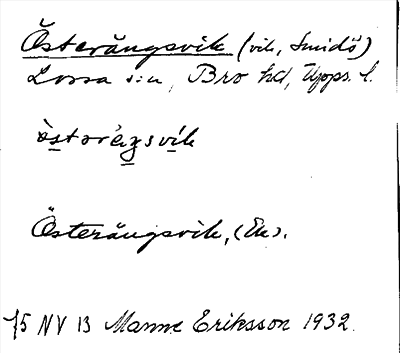 Österängsvik (vik, Smidö)
Lossa sn, Bro hd, Upps. l.
òstəráŋsvík
Österängsvik, (Ek).
75 NV 13 Manne Eriksson 1932.